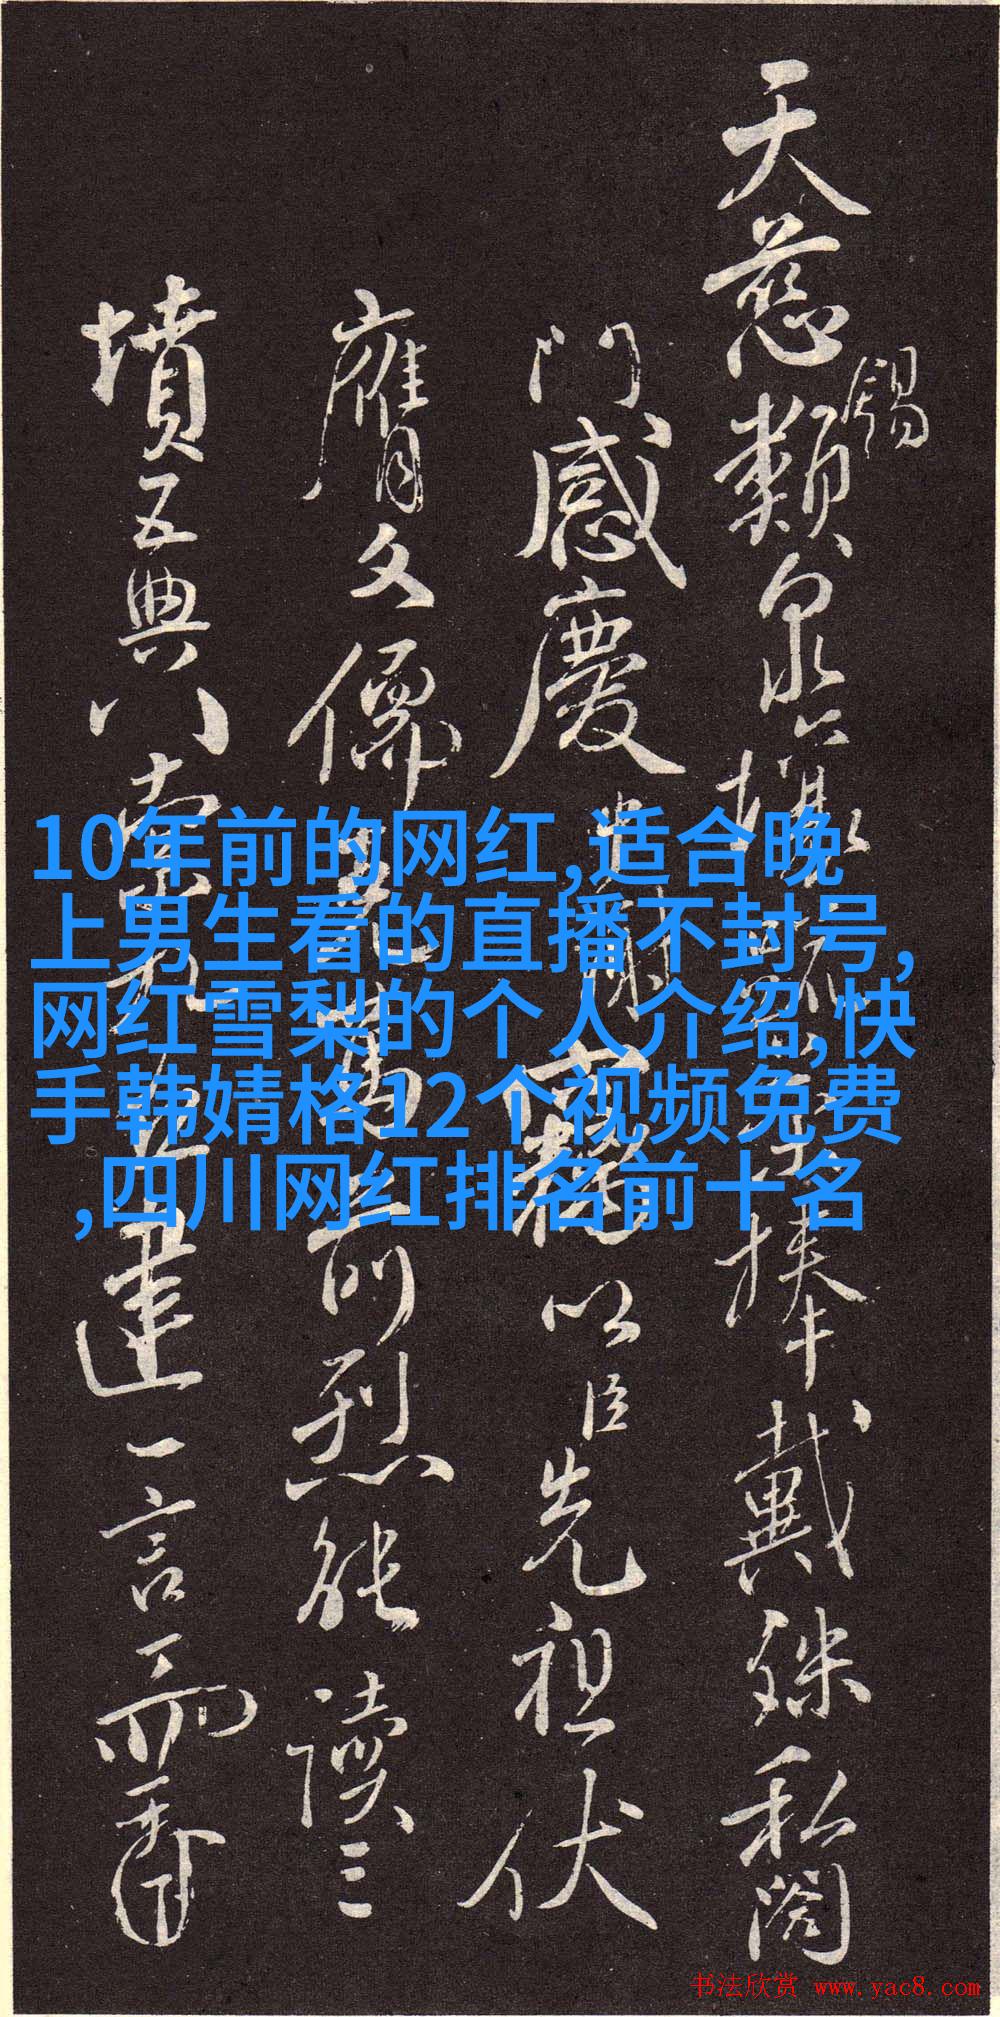 天慈錫類泉
捧戴殊私闔
門感慶
以臣先祖伏
膺文儒
前烈能讀三
墳五典八索九丘建一言而
10年前的网红,适合晚
上男生看的直播不封号,
网红雪梨的个人介绍,快
手韩婧格12个视频免费
,四川网红排名前十名
书法欣赏 www.yac8.com